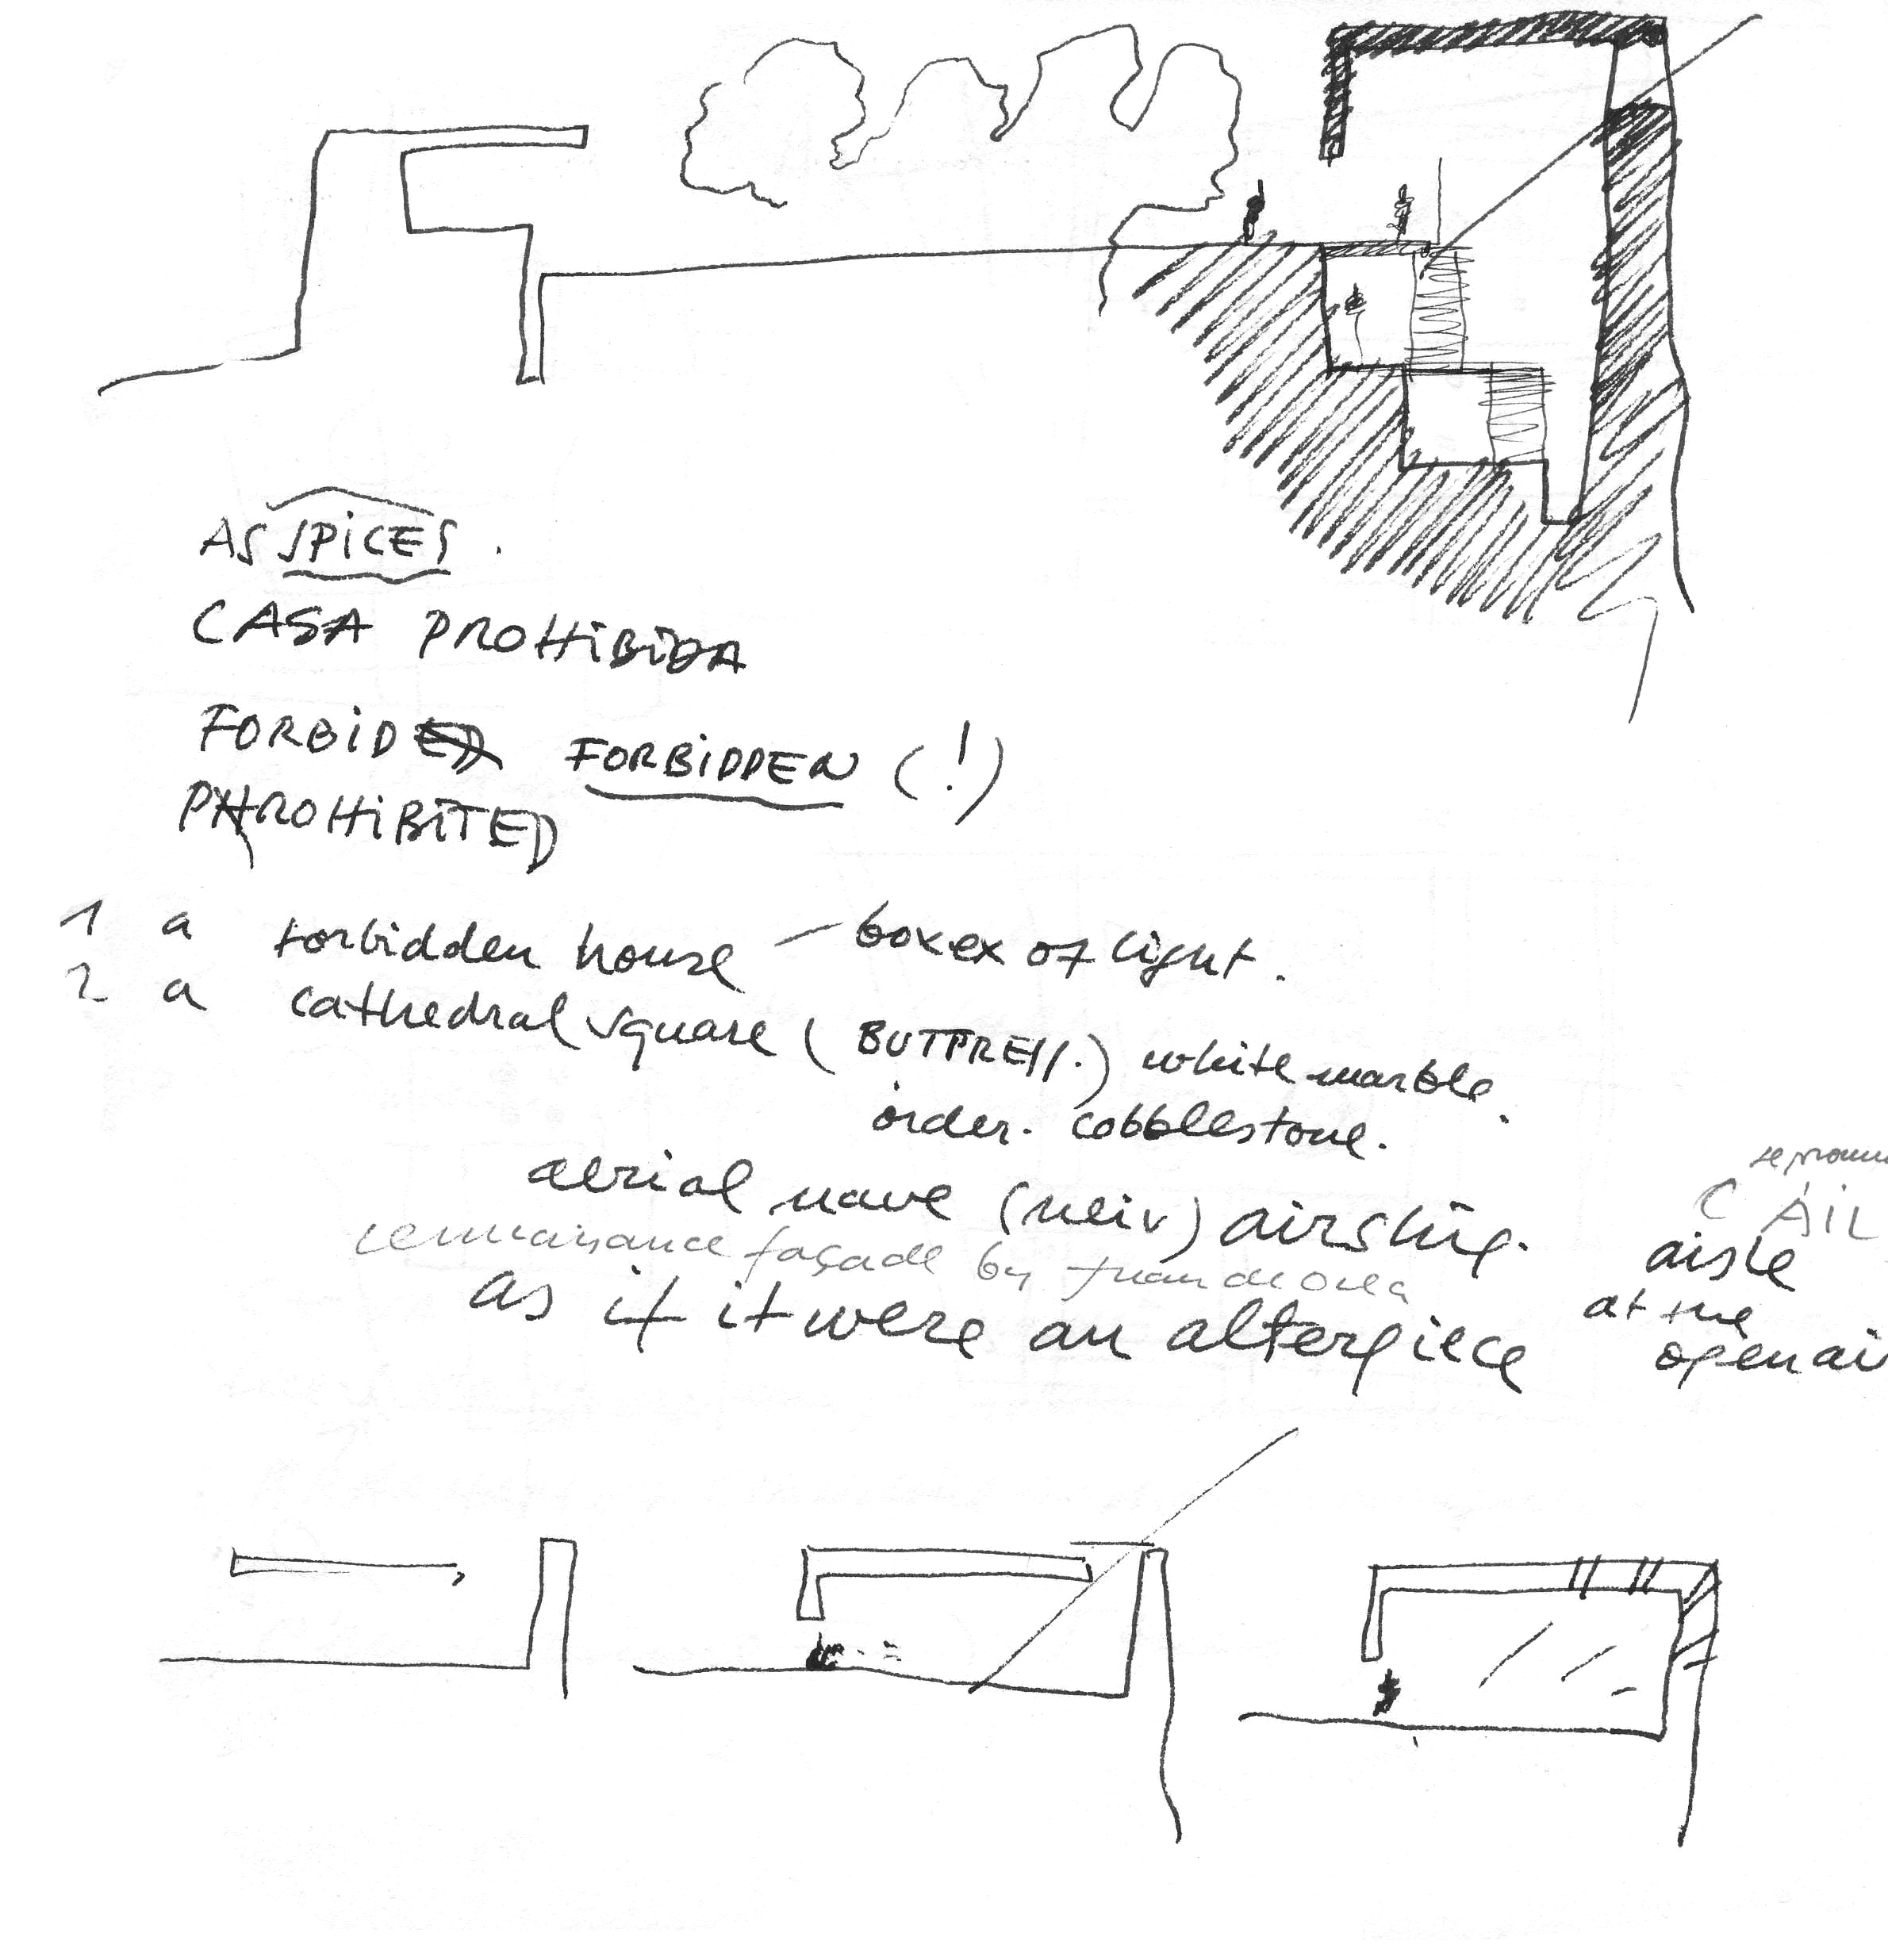 AS SPICES.
CASA PROHIBIDA
FORBIDED FORBIDDEN (!)
PHROHIBITED
1 a forbidden house – boxex of light.
2 a cathedral square (BUTTRESS.) white marble.
order. cobblestone.
aerial nave (neiv) airship.
rennaisance façade by
as if it were an alterpiece
C AIL
aisle
at the
open ai